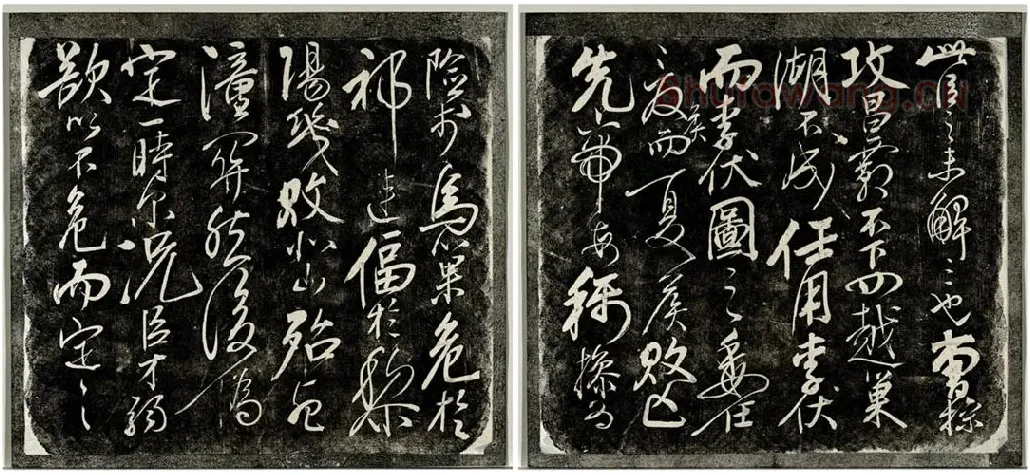 險於烏巢危於
祁連偪於黎
陽幾敗北山殆死
潼關然後偽
定一時尔況臣才弱
欲以不危而定之
此臣之未解三也曹操
攻昌霸不下四越巢
湖不成任用李伏
而李伏圖之委任
夏侯而夏侯敗亡
先帝每稱操為
shufawang.cn